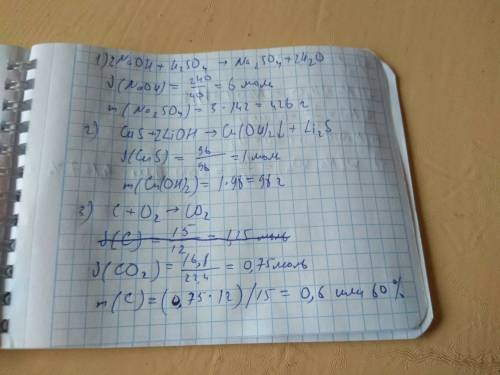 1) 2NaOH + H2SO4 → Na2SO4 + 2H2O
ν(NaOH) = 240/40 = 6 моль
m(Na2SO4) = 3 · 142 = 426 г
2) CuS + 2LiOH → Cu(OH)2↓ + Li2S
ν(CuS) = 96/96 = 1 моль
m(Cu(OH)2) = 1 · 98 = 98 г
3) C + O2 → CO2
ν(C) = 15/12 = 1,25 моль
ν(CO2) = 16,8/22,4 = 0,75 моль
m(C) = (0,75 · 12)/15 = 0,6 или 60%